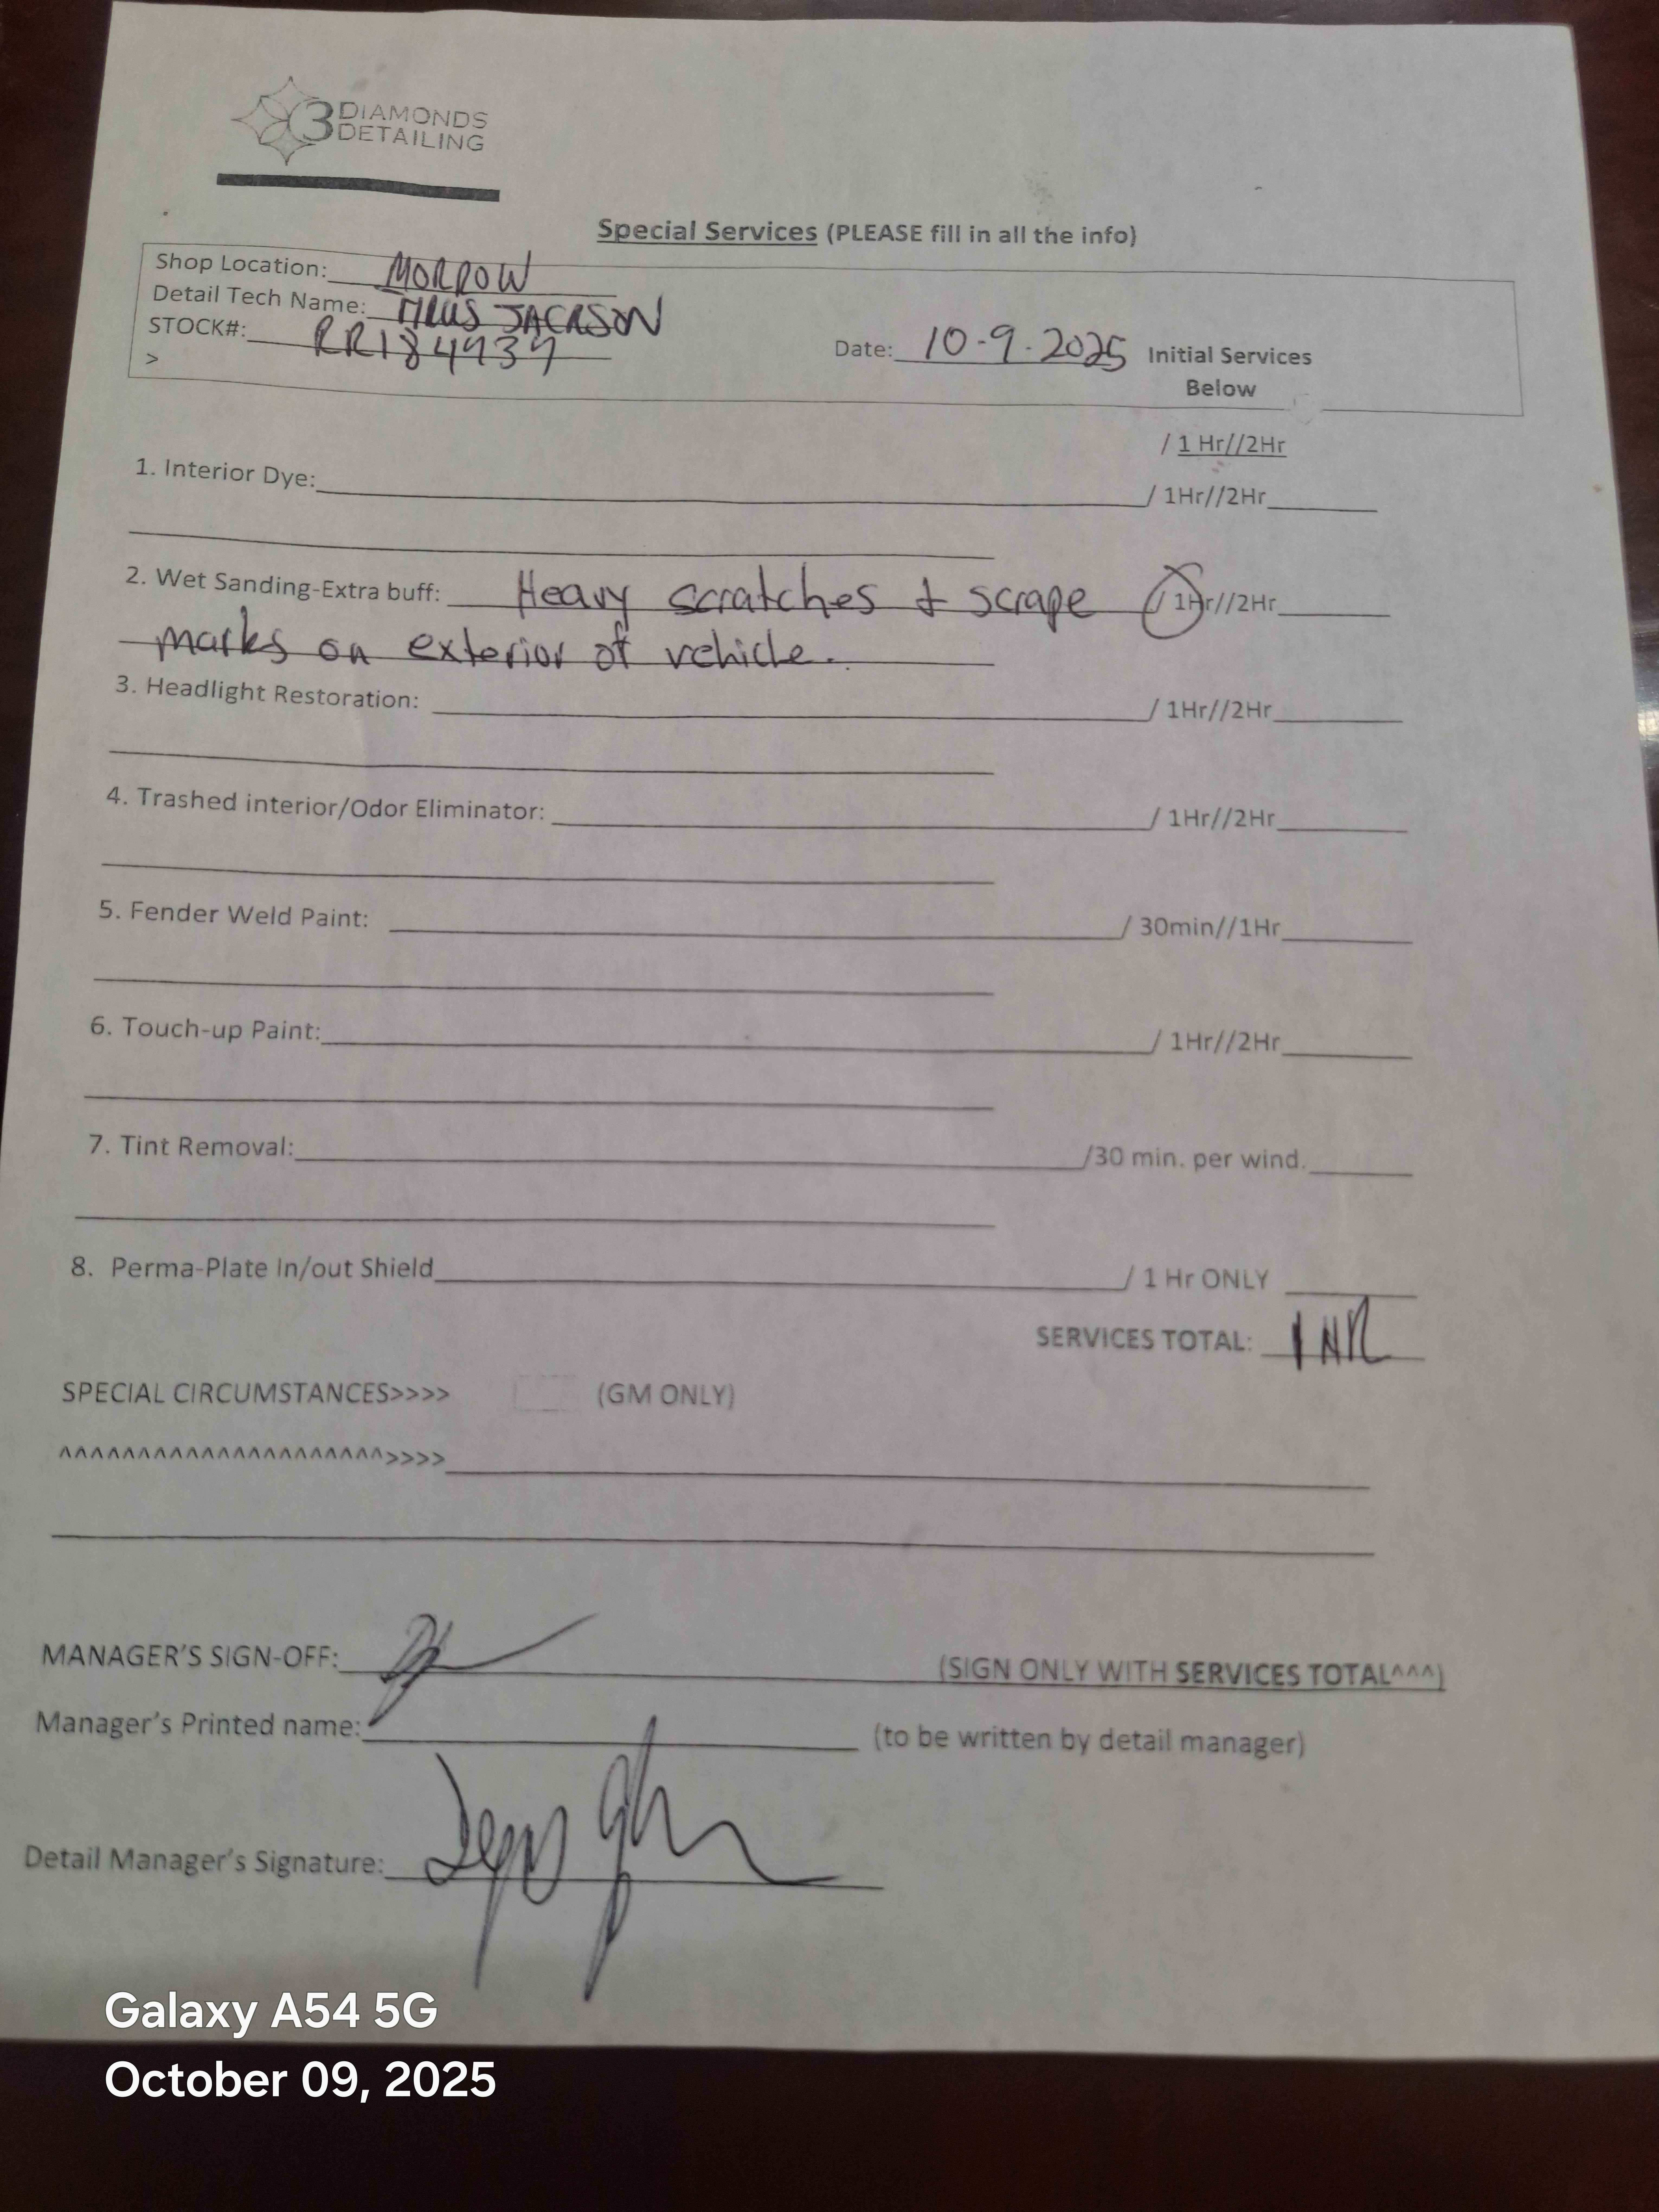 3 DIAMONDS
DETAILING
Special Services (PLEASE fill in all the info)
Shop Location: MORROW
Detail Tech Name: JACKSON
STOCK#: RR184939
Date: 10-9-2025 Initial Services
>
Below
/ 1 Hr//2Hr
1. Interior Dye:____/ 1Hr//2Hr____
2. Wet Sanding-Extra buff: Heavy scratches & scrape / 1Hr//2Hr____
marks on exterior of vehicle.
3. Headlight Restoration: ____/ 1Hr//2Hr____
4. Trashed interior/Odor Eliminator: ____/ 1Hr//2Hr____
5. Fender Weld Paint: ____/ 30min//1Hr____
6. Touch-up Paint:____/ 1Hr//2Hr____
7. Tint Removal:____/30 min. per wind.____
8. Perma-Plate In/out Shield____/ 1 Hr ONLY ____
SERVICES TOTAL: 1 HR
SPECIAL CIRCUMSTANCES>>>> (GM ONLY)
^^^^^^^^^^^^^^^^^^^^^>>>>____
MANAGER'S SIGN-OFF:____(SIGN ONLY WITH SERVICES TOTAL^^^)
Manager's Printed name:____ (to be written by detail manager)
Detail Manager's Signature:____
Galaxy A54 5G
October 09, 2025